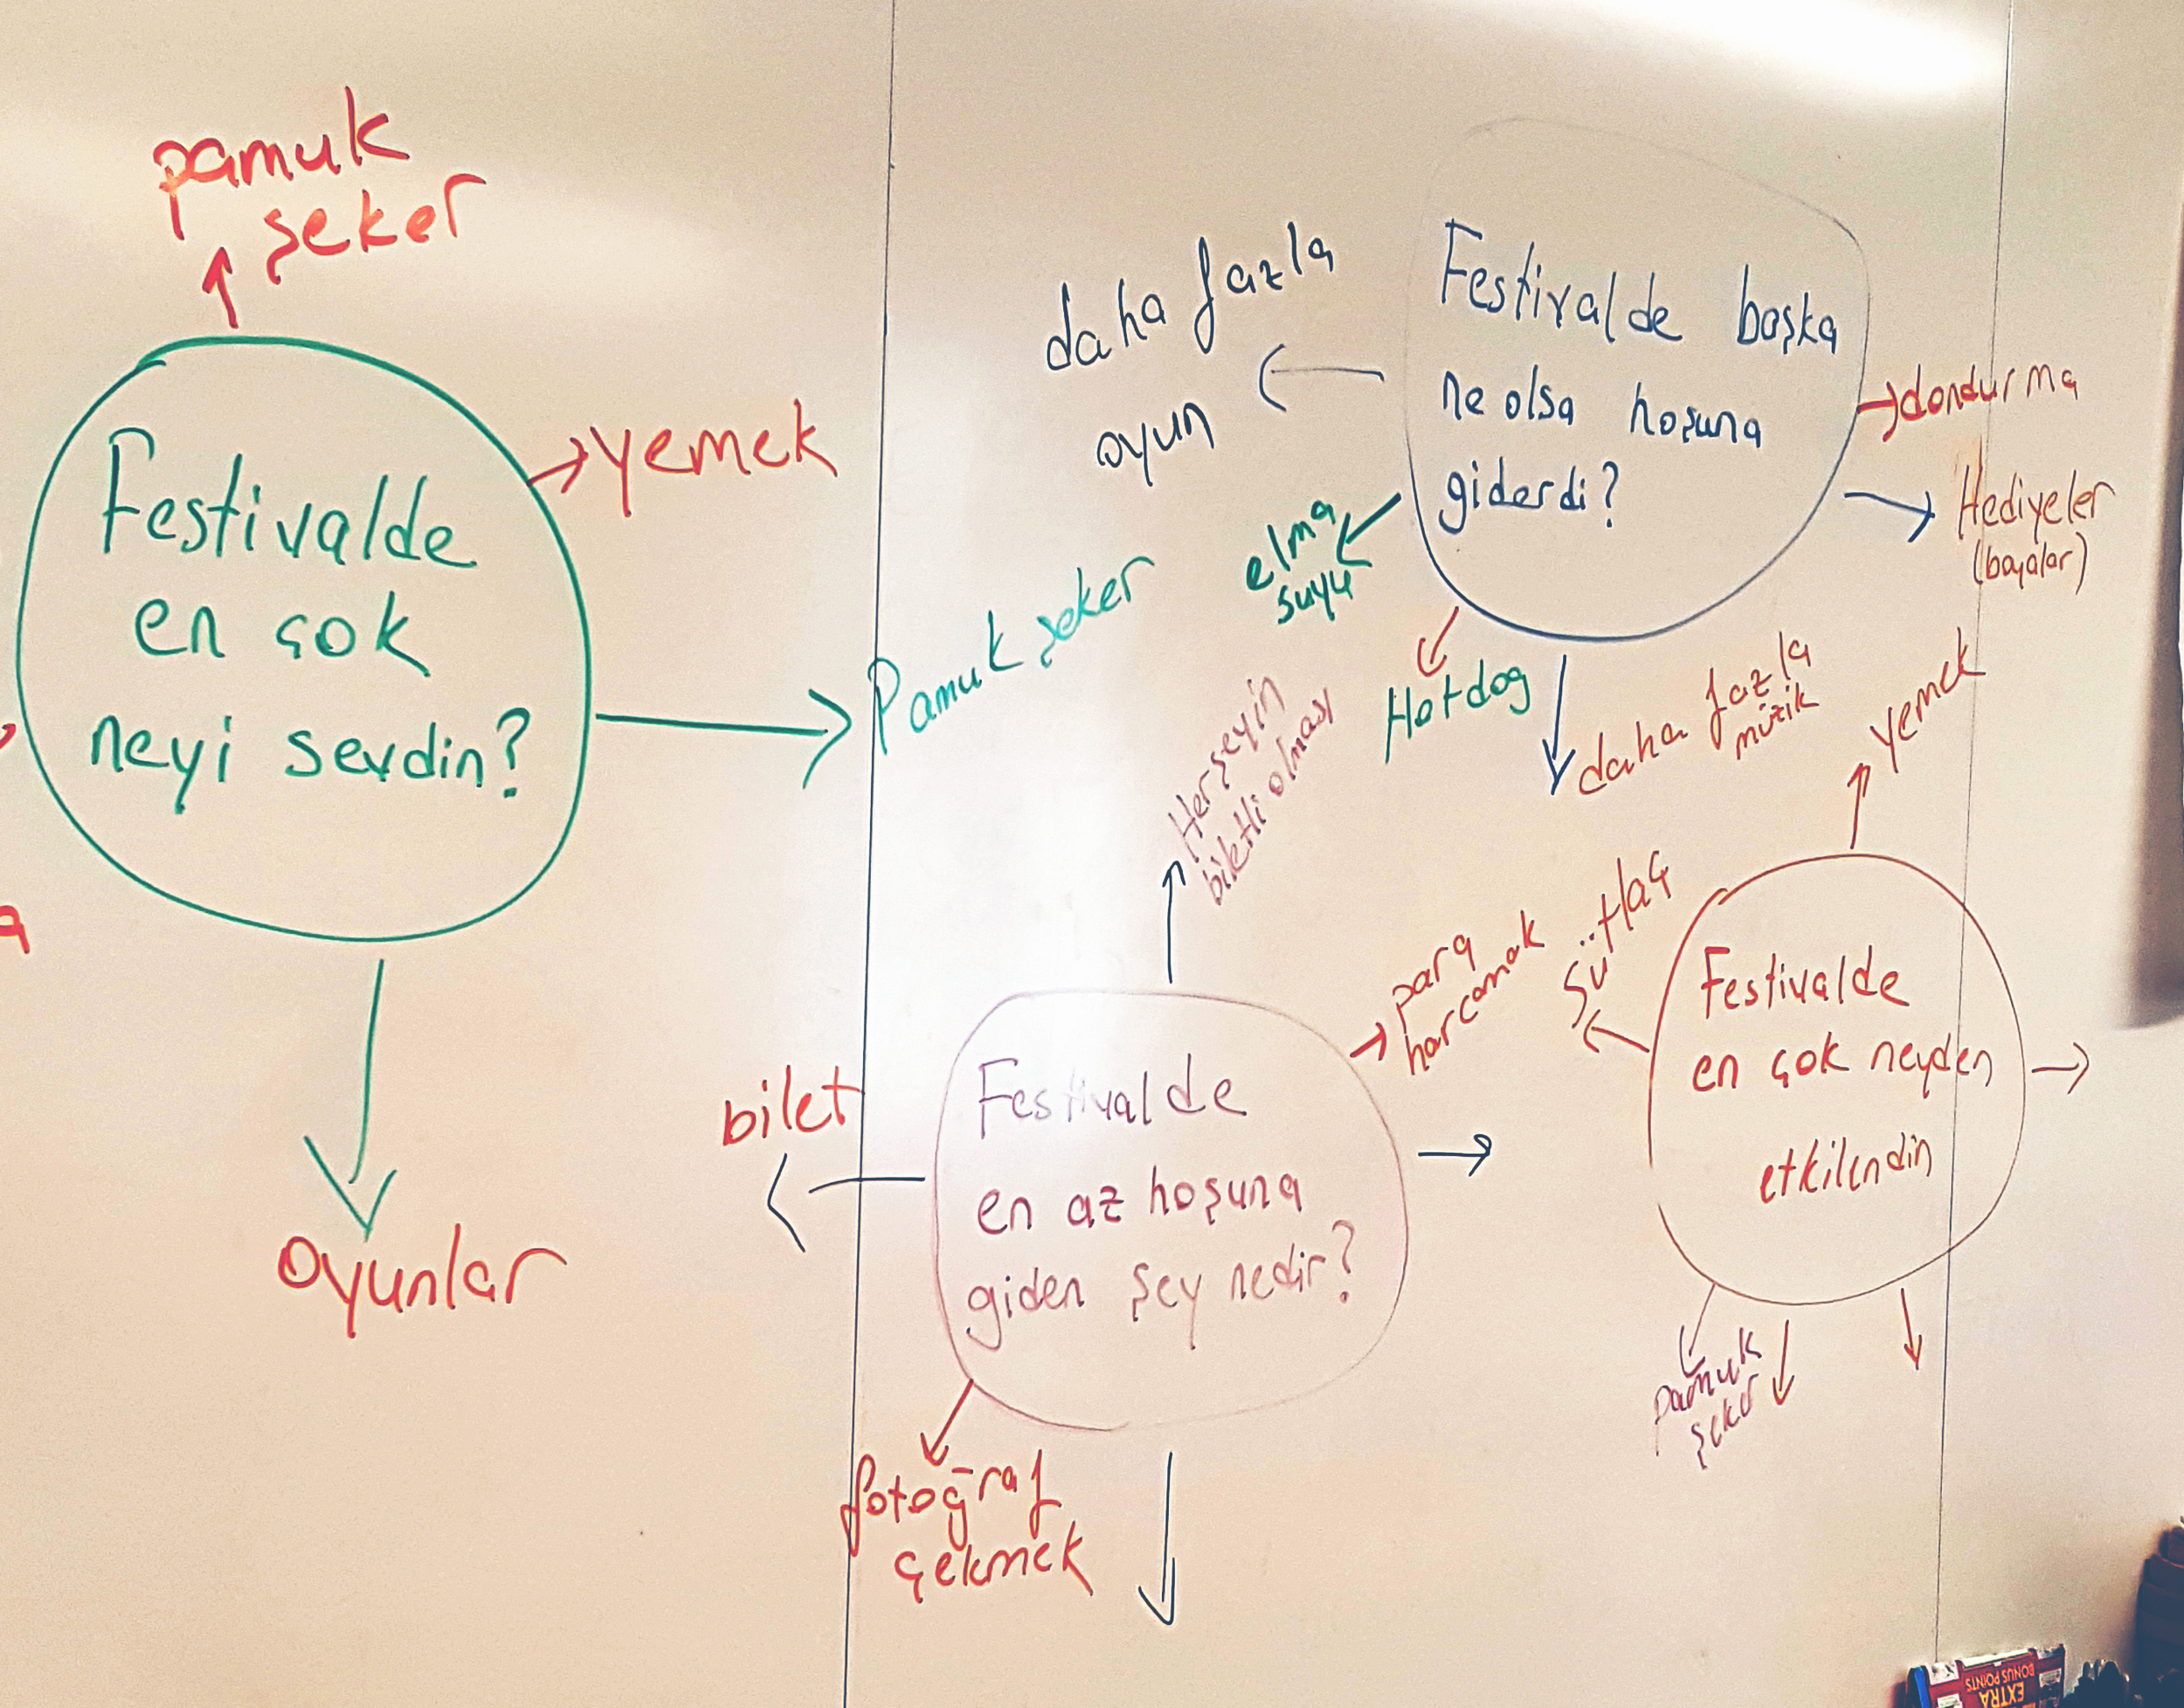 pamuk
şeker
yemek
Festivalde
en çok
neyi sevdin?
Pamuk şeker
oyunlar
Festivalde başka
ne olsa hoşuna
giderdi?
daha fazla
oyun
elma
suyu
Hotdog
daha fazla
müzik
dondurma
Hediyeler
(boyalar)
Festivalde
en az hoşuna
giden şey nedir?
Herşeyin
biletli olması
para
harcamak
bilet
fotoğraf
çekmek
Festivalde
en çok neyden
etkilendin
yemek
sütlaç
pamuk
şeker
EXTRA
BONUS POINTS